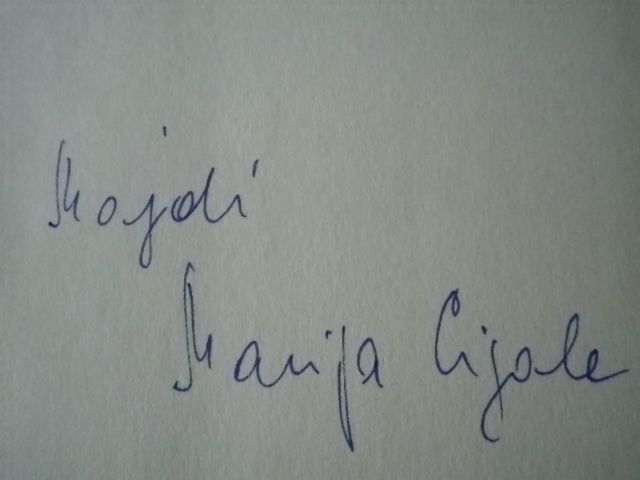 Majdi
Marija Cigale